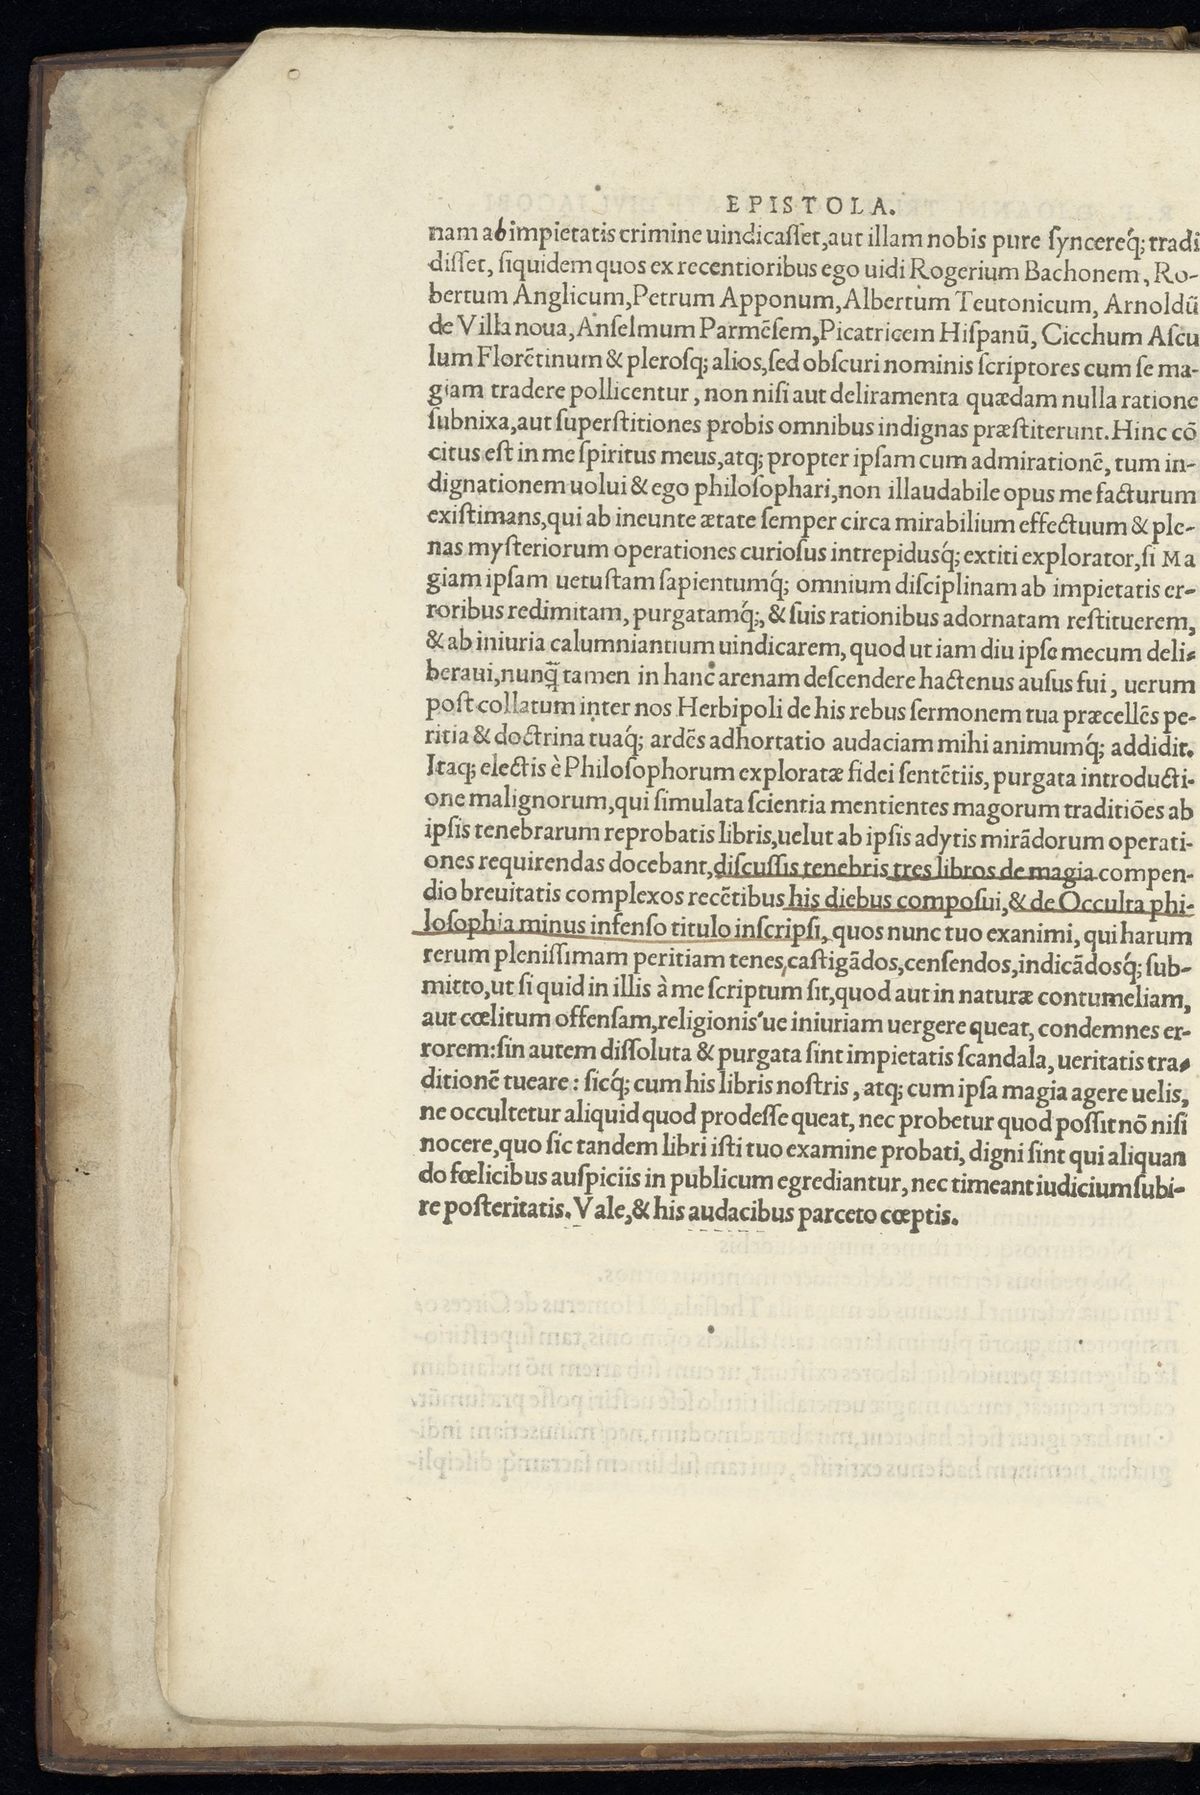 EPISTOLA.
nam ab impietatis crimine uindicasset, aut illam nobis pure syncereq́; tradi
disset, siquidem quos ex recentioribus ego uidi Rogerium Bachonem, Ro-
bertum Anglicum, Petrum Apponum, Albertum Teutonicum, Arnoldū
de Villa noua, Anselmum Parmēsem, Picatricem Hispanū, Cicchum Ascu
lum Florētinum & plerosq; alios, sed obscuri nominis scriptores cum se ma-
giam tradere pollicentur, non nisi aut deliramenta quædam nulla ratione
subnixa, aut superstitiones probis omnibus indignas præstiterunt. Hinc cō
citus est in me spiritus meus, atq; propter ipsam cum admirationē, tum in-
dignationem uolui & ego philosophari, non illaudabile opus me facturum
existimans, qui ab ineunte ætate semper circa mirabilium effectuum & ple-
nas mysteriorum operationes curiosus intrepidusq́; extiti explorator, si Ma
giam ipsam uetustam sapientumq́; omnium disciplinam ab impietatis er-
roribus redimitam, purgatamq́;, & suis rationibus adornatam restituerem,
& ab iniuria calumniantium uindicarem, quod ut iam diu ipse mecum deli-
beraui, nunq̄ tamen in hanc arenam descendere hactenus ausus fui, uerum
post collatum inter nos Herbipoli de his rebus sermonem tua præcellēs pe-
ritia & doctrina tuaq́; ardēs adhortatio audaciam mihi animumq́; addidit.
Itaq; electis è Philosophorum exploratæ fidei sentētiis, purgata introducti-
one malignorum, qui simulata scientia mentientes magorum traditiōes ab
ipsis tenebrarum reprobatis libris, uelut ab ipsis adytis mirādorum operati-
ones requirendas docebant, discussis tenebris tres libros de magia compen-
dio breuitatis complexos recētibus his diebus composui, & de Occulta phi-
losophia minus infenso titulo inscripsi, quos nunc tuo exanimi, qui harum
rerum plenissimam peritiam tenes, castigādos, censendos, indicādosq́; sub-
mitto, ut si quid in illis à me scriptum sit, quod aut in naturæ contumeliam,
aut cœlitum offensam, religionis'ue iniuriam uergere queat, condemnes er-
rorem: sin autem dissoluta & purgata sint impietatis scandala, ueritatis tra-
ditionē tueare: sicq́; cum his libris nostris, atq; cum ipsa magia agere uelis,
ne occultetur aliquid quod prodesse queat, nec probetur quod possit nō nisi
nocere, quo sic tandem libri isti tuo examine probati, digni sint qui aliquan
do fœlicibus auspiciis in publicum egrediantur, nec timeant iudicium subi-
re posteritatis. Vale, & his audacibus parceto cœptis.